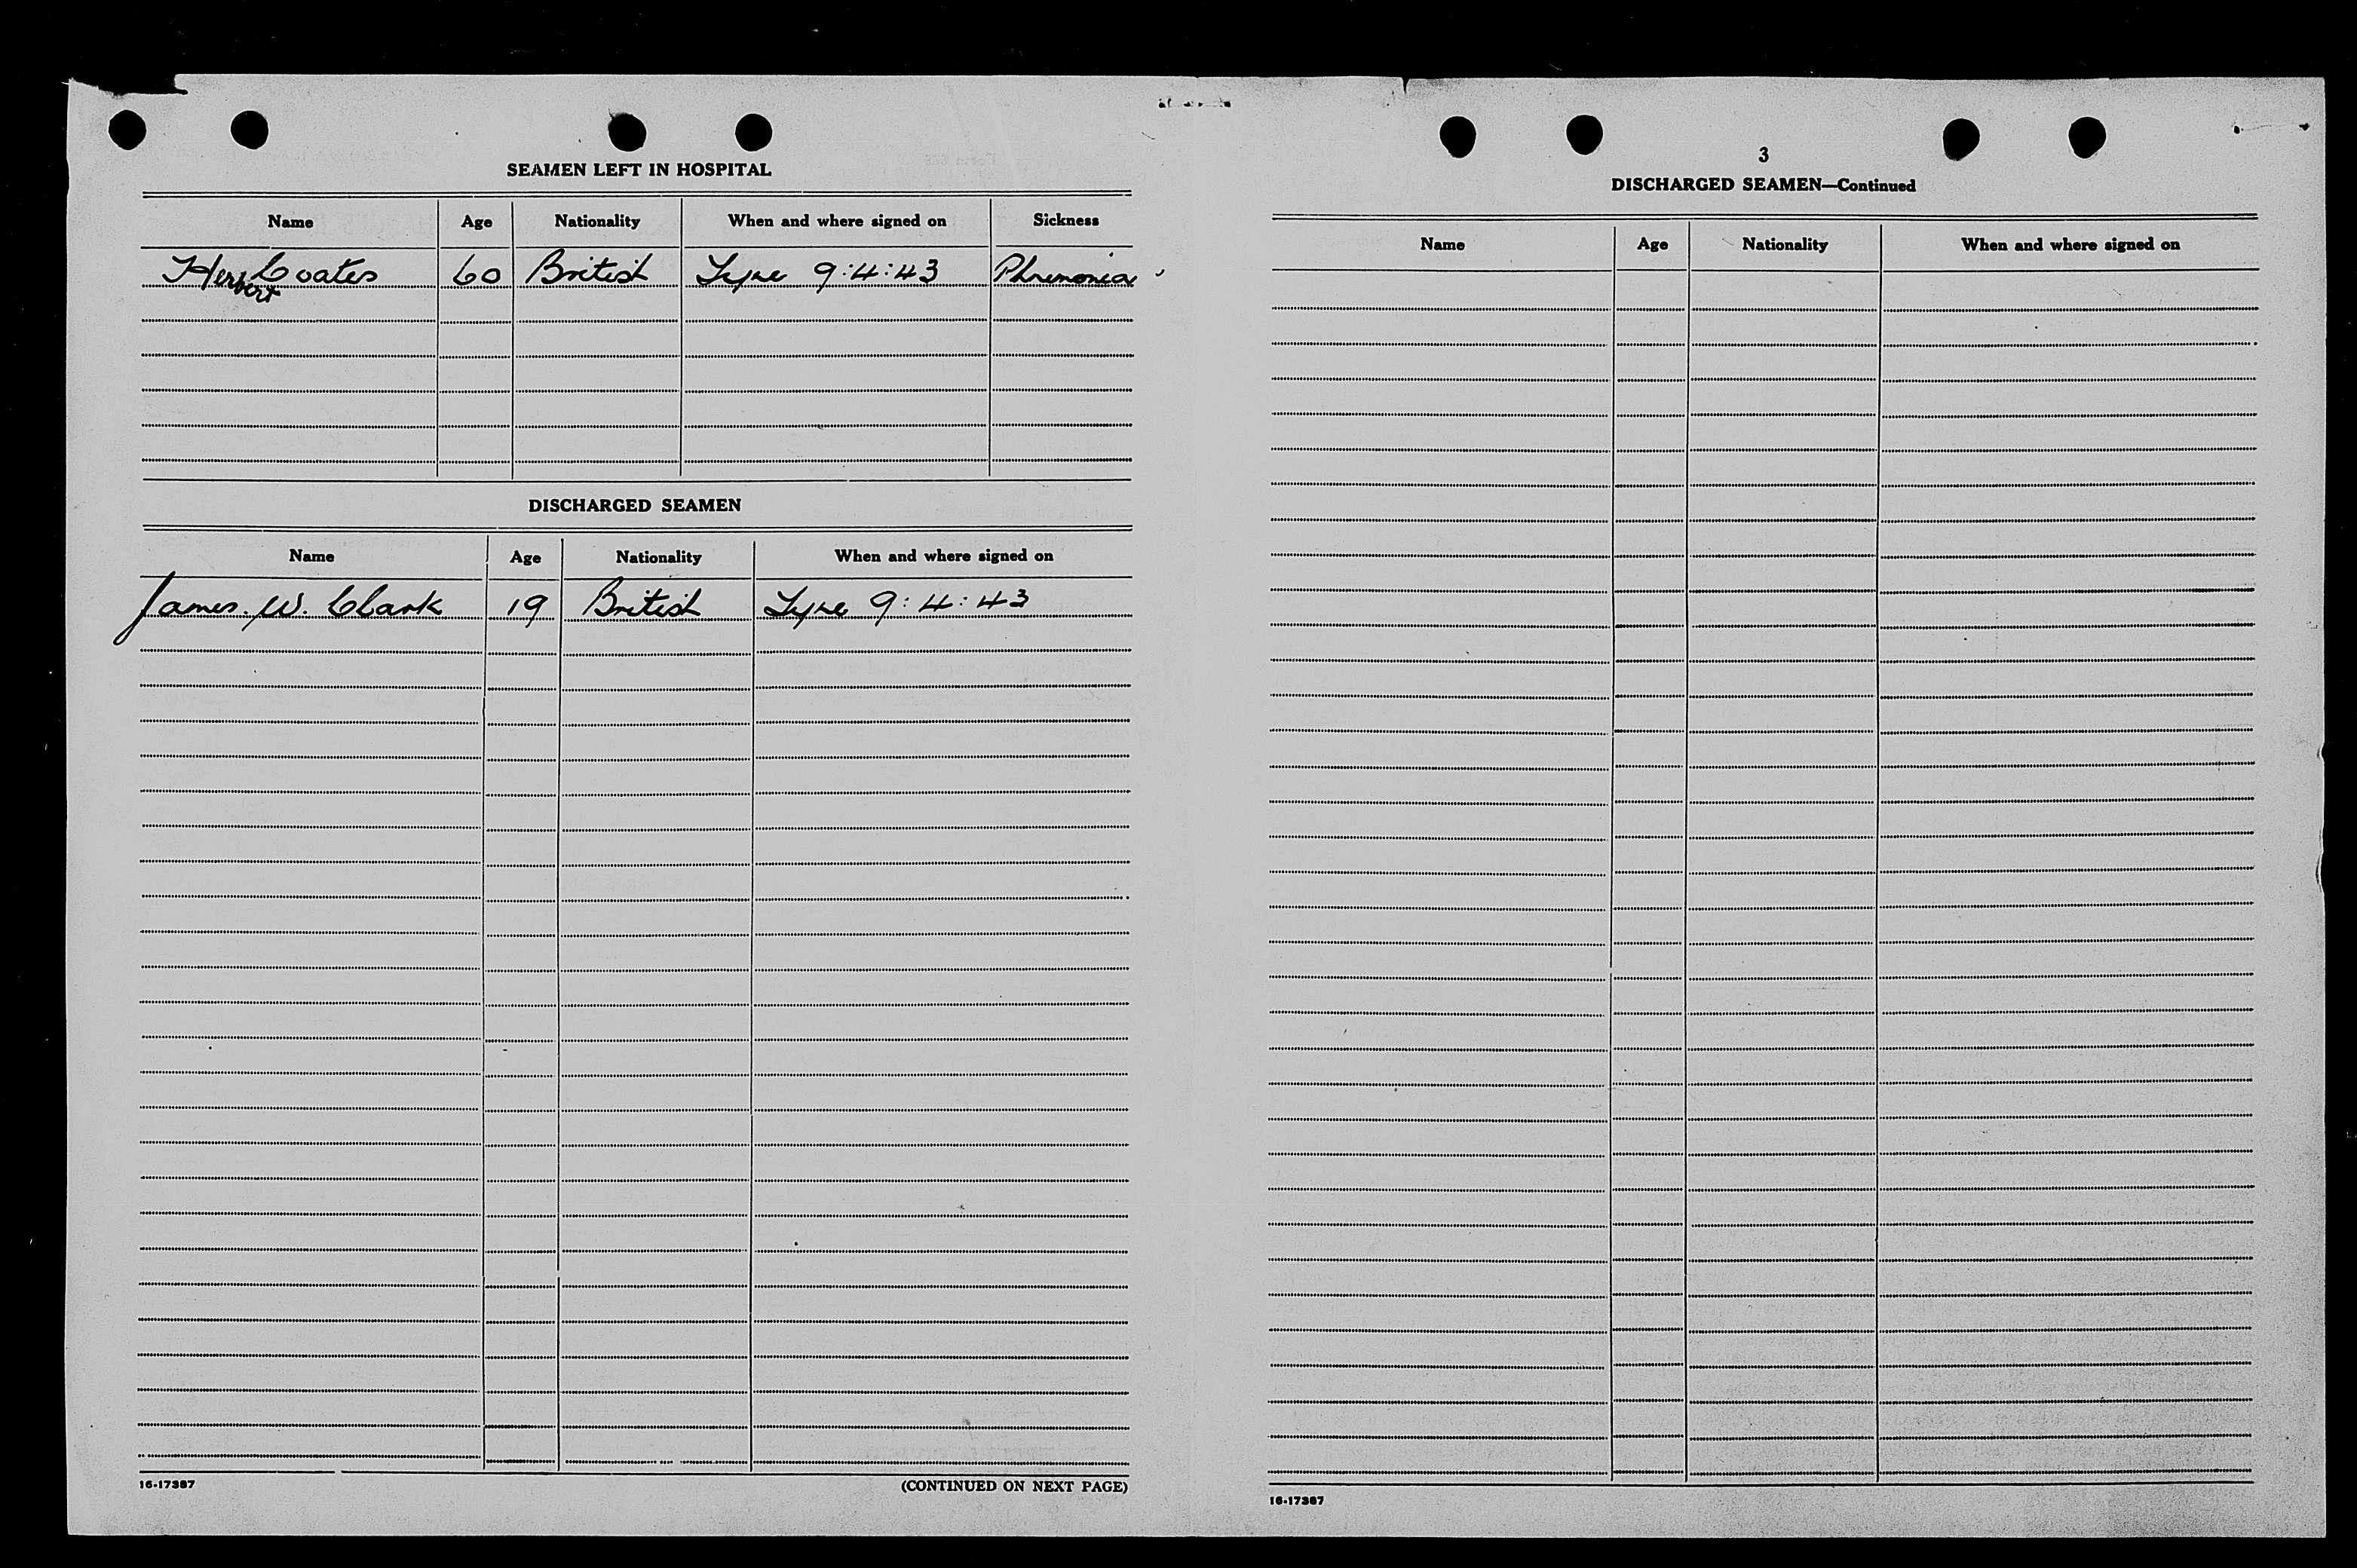 SEAMEN LEFT IN HOSPITAL
Name Age Nationality When and where signed on Sickness
Herbert Coates 60 British Tyne 9:4:43 Phnemonia
DISCHARGED SEAMEN
Name Age Nationality When and where signed on
James. W. Clark 19 British Tyne 9:4:43
16-17387
(CONTINUED ON NEXT PAGE)
3
DISCHARGED SEAMEN—Continued
Name Age Nationality When and where signed on
16-17387